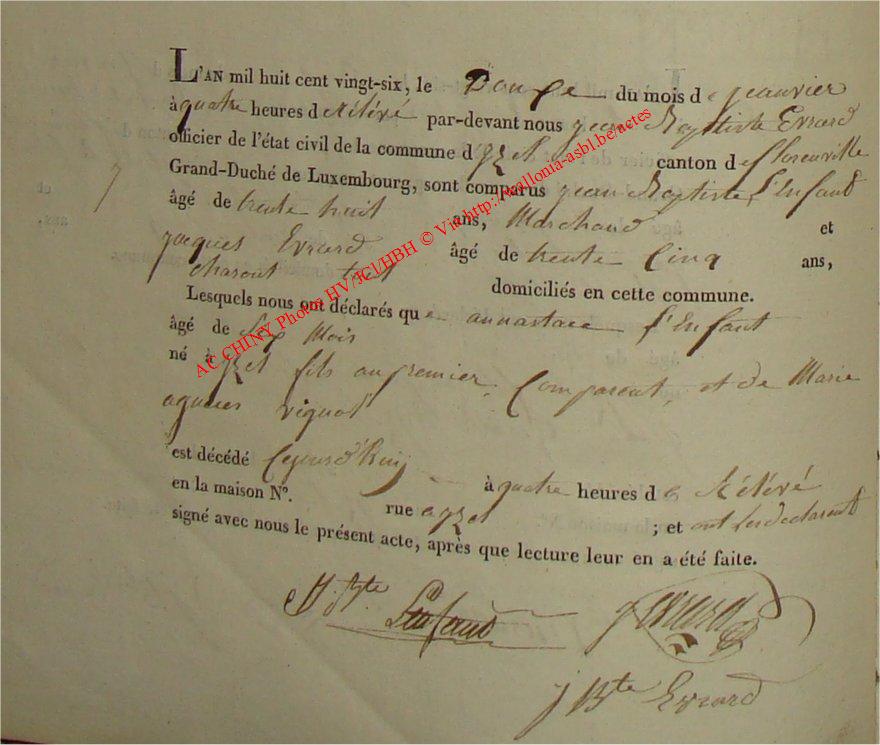 L'AN mil huit cent vingt-six, le Douze du mois de jeanvier
à quatre heures d Rélévé par-devant nous jean Baptiste Evrard
officier de l'état civil de la commune d'Izel canton de florenville
Grand-Duché de Luxembourg, sont comparus jean Baptiste l'Enfant
7
âgé de trente huit ans, Marchand et
jacques Evrard âgé de trente Cinq ans,
charont domiciliés en cette commune.
Lesquels nous ont déclarés que annastace l'Enfant
âgé de Six Mois
né à Izel fils au premier Comparent, et de Marie
agnees vignot
est décédé Cejourd'huij à quatre heures de Rélévé
en la maison N°. rue a yzel ; et ont Les declarent
signé avec nous le présent acte, après que lecture leur en a été faite.
J Bte Lenfant J Evrard
J Bte Evrard
AC CHINY Photos HV/JCl/HBH © Via http://wallonia-asbl.be/actes